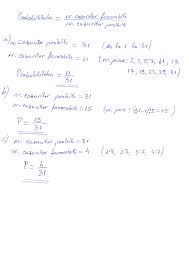 Probabilitatea = nr. cazurilor favorabile / nr. cazurilor posibile
a)
nr. cazurilor posibile = 31 (de la 1 la 31)
nr. cazurilor favorabile = 11 (nr. prime: 2, 3, 5, 7, 11, 13
17, 19, 23, 29, 31)
Probabilitatea = 11/31
b)
nr. cazurilor posibile = 31
nr. cazurilor favorabile = 15 (nr. pare: (31-1):2=15)
P = 15/31
c)
nr. cazurilor posibile = 31
nr. cazurilor favorabile = 4
P = 4/31